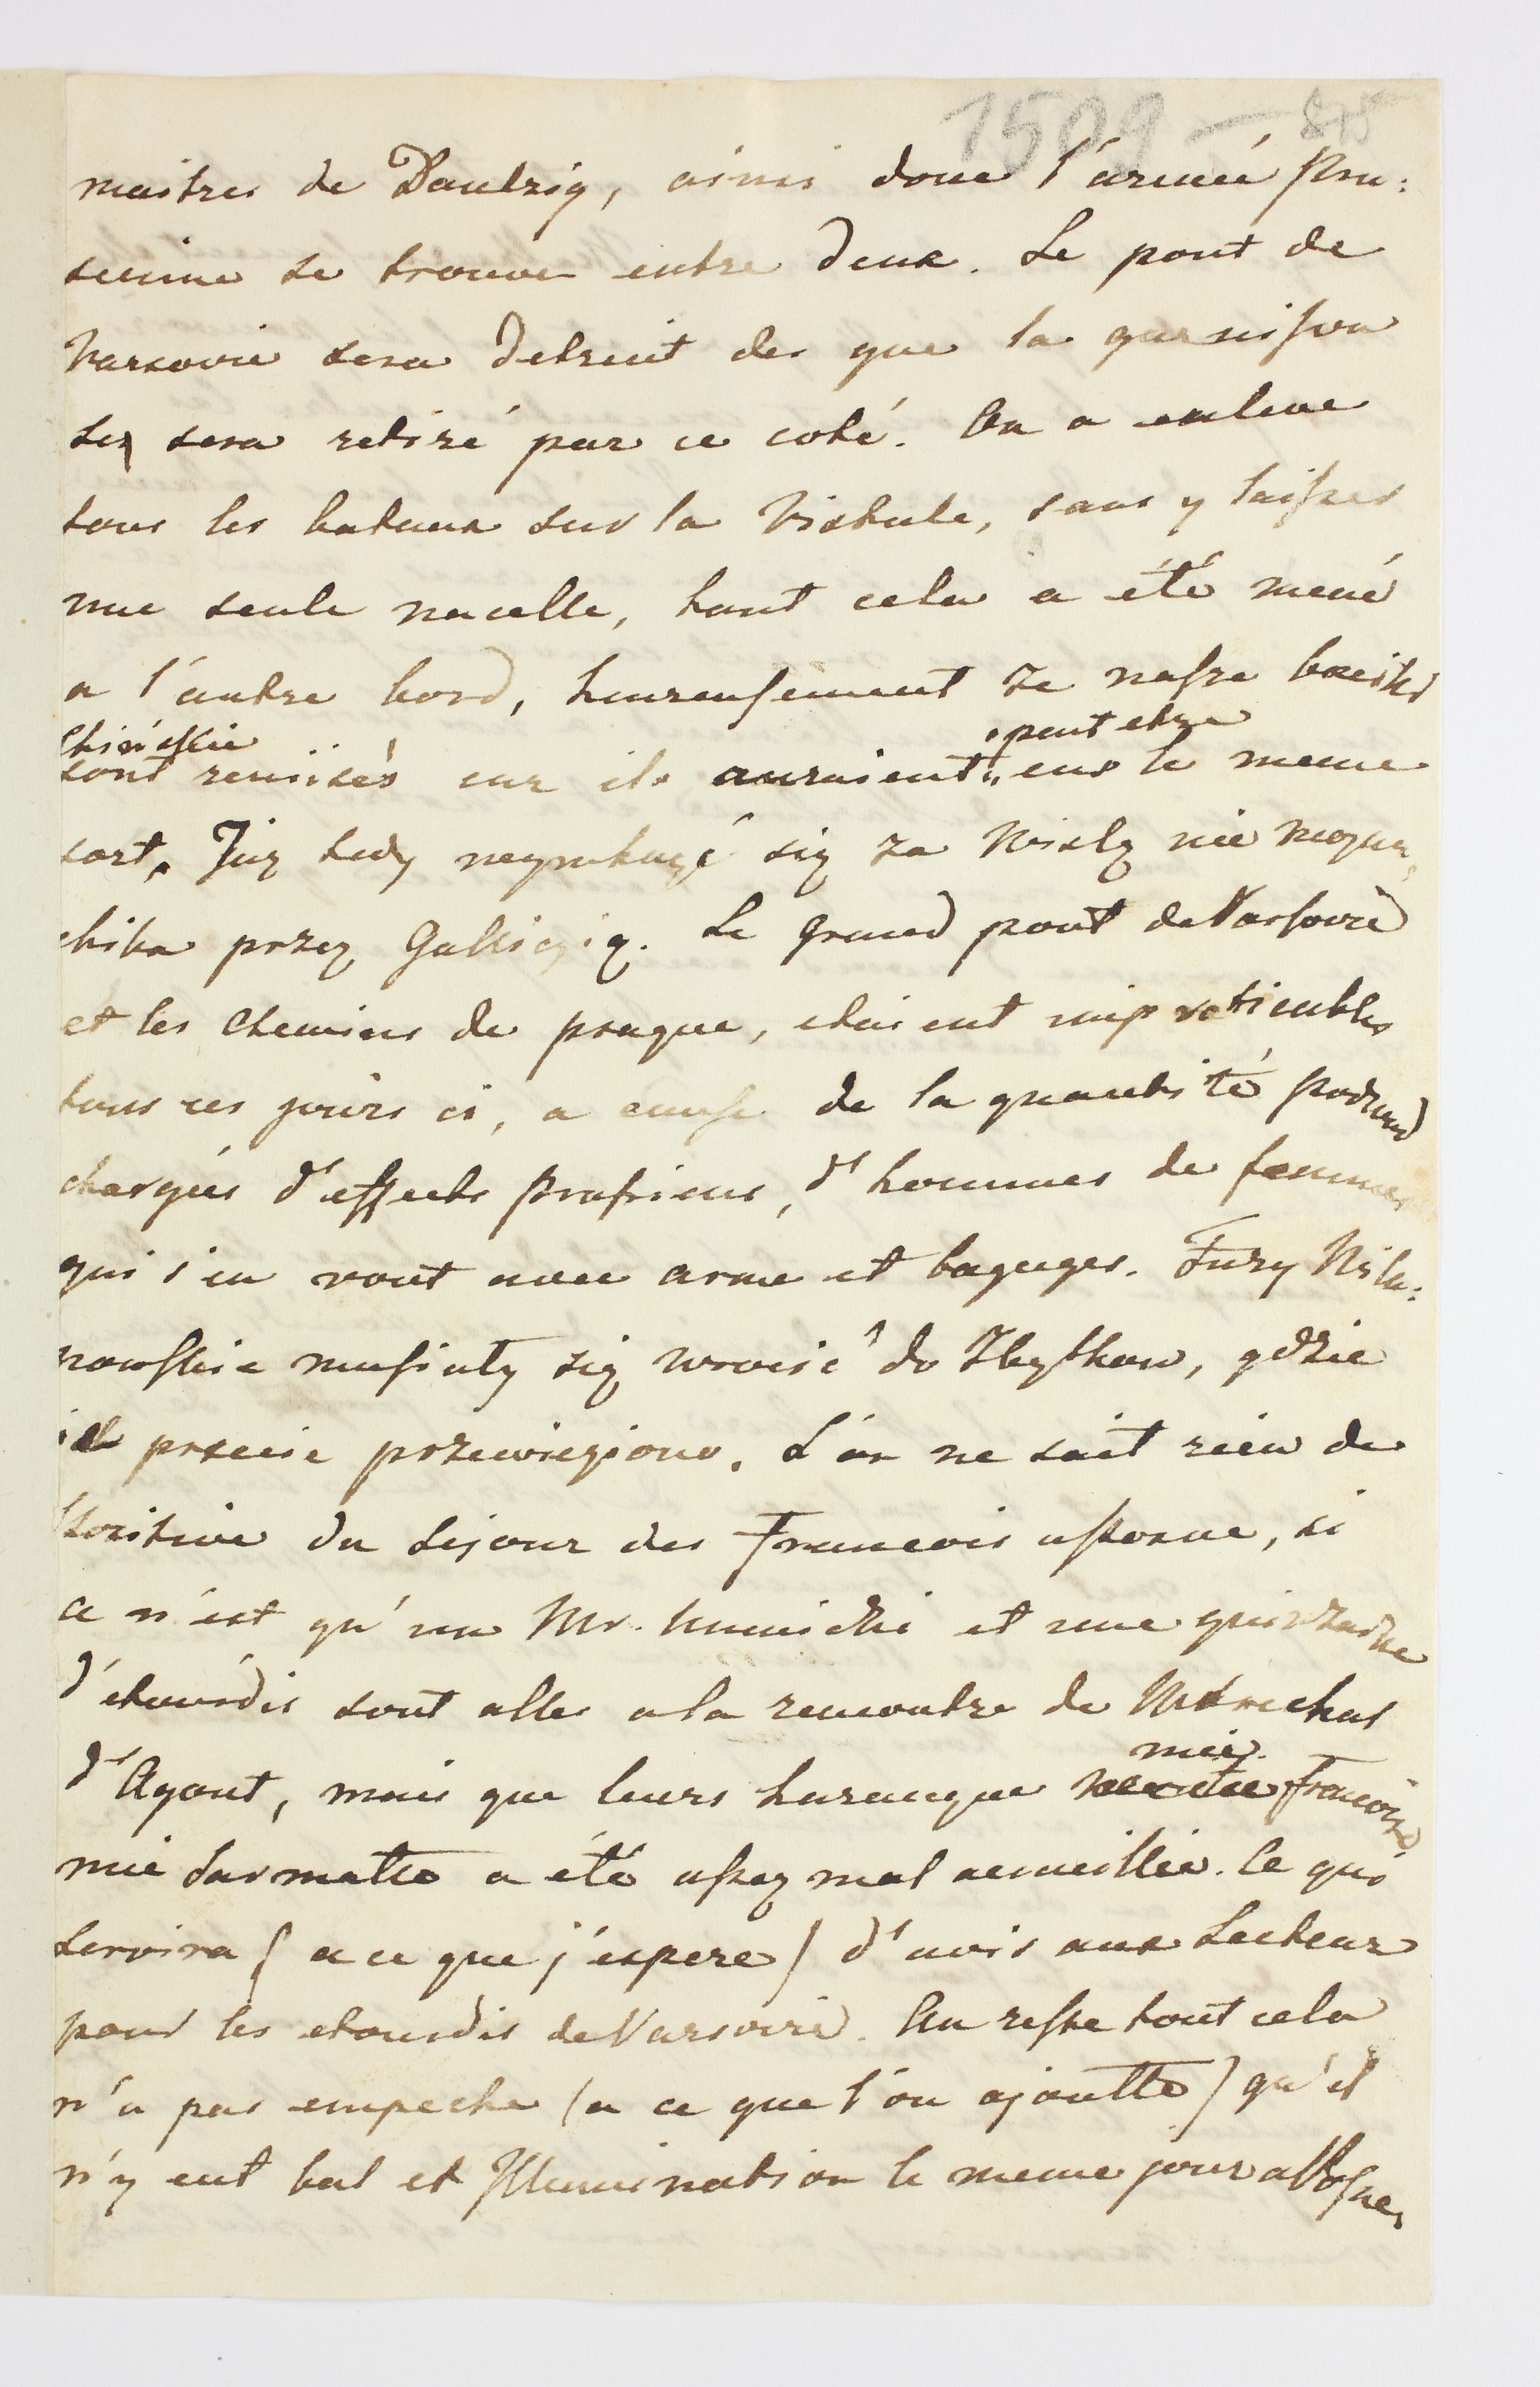 1509 — 875
maitres de Dantzig, ainsi donc l'armée pru:
sienne se trouve entre deux. Le pont de
Varsovie sera detruit des que la garnison
sera retiré par ce coté. On a enleve
tous les bateaux sur la Vistule, sans y laisser
une seule nacelle, tout cela a été mené
a l'autre bord, heureusement ze nasze
peut etre
sont remisés car ils auraient eus le meme
sort. Już tedy się za Wisłę nie można,
chiba przez Gallicyią. Le grand pont de Varsovie
et les chemins de prague, etaient impratiables
tous ces jours ci, a cause de la quantité podwod
chargées d'effects prusiens, d'hommes de femmes
qui s'en vont avec arme et bagages. Fury Wila:
nowskie musiały się wrócić do Zbytkow, gdzie
ich przecie przewieziono. L'on ne sait rien de
positive du sejour des Francois a posnne, si
ce n'est qu'un Mr. Uminski et une quinzaine
d'etourdis sont alles a la rencontre de Marechal
d'Avout, mais que leurs harangue
mie francoise
mie sarmatte a été assez mal acueillie. Ce qui
servira (a ce que j'espere) d'avis aux Lecteur
pour les etourdis de Varsovie. Au reste tout cela
n'a pas empeche (a ce que l'on ajoutte) qu'il
n'y eut bal et Illumination le meme jour a Posnne,